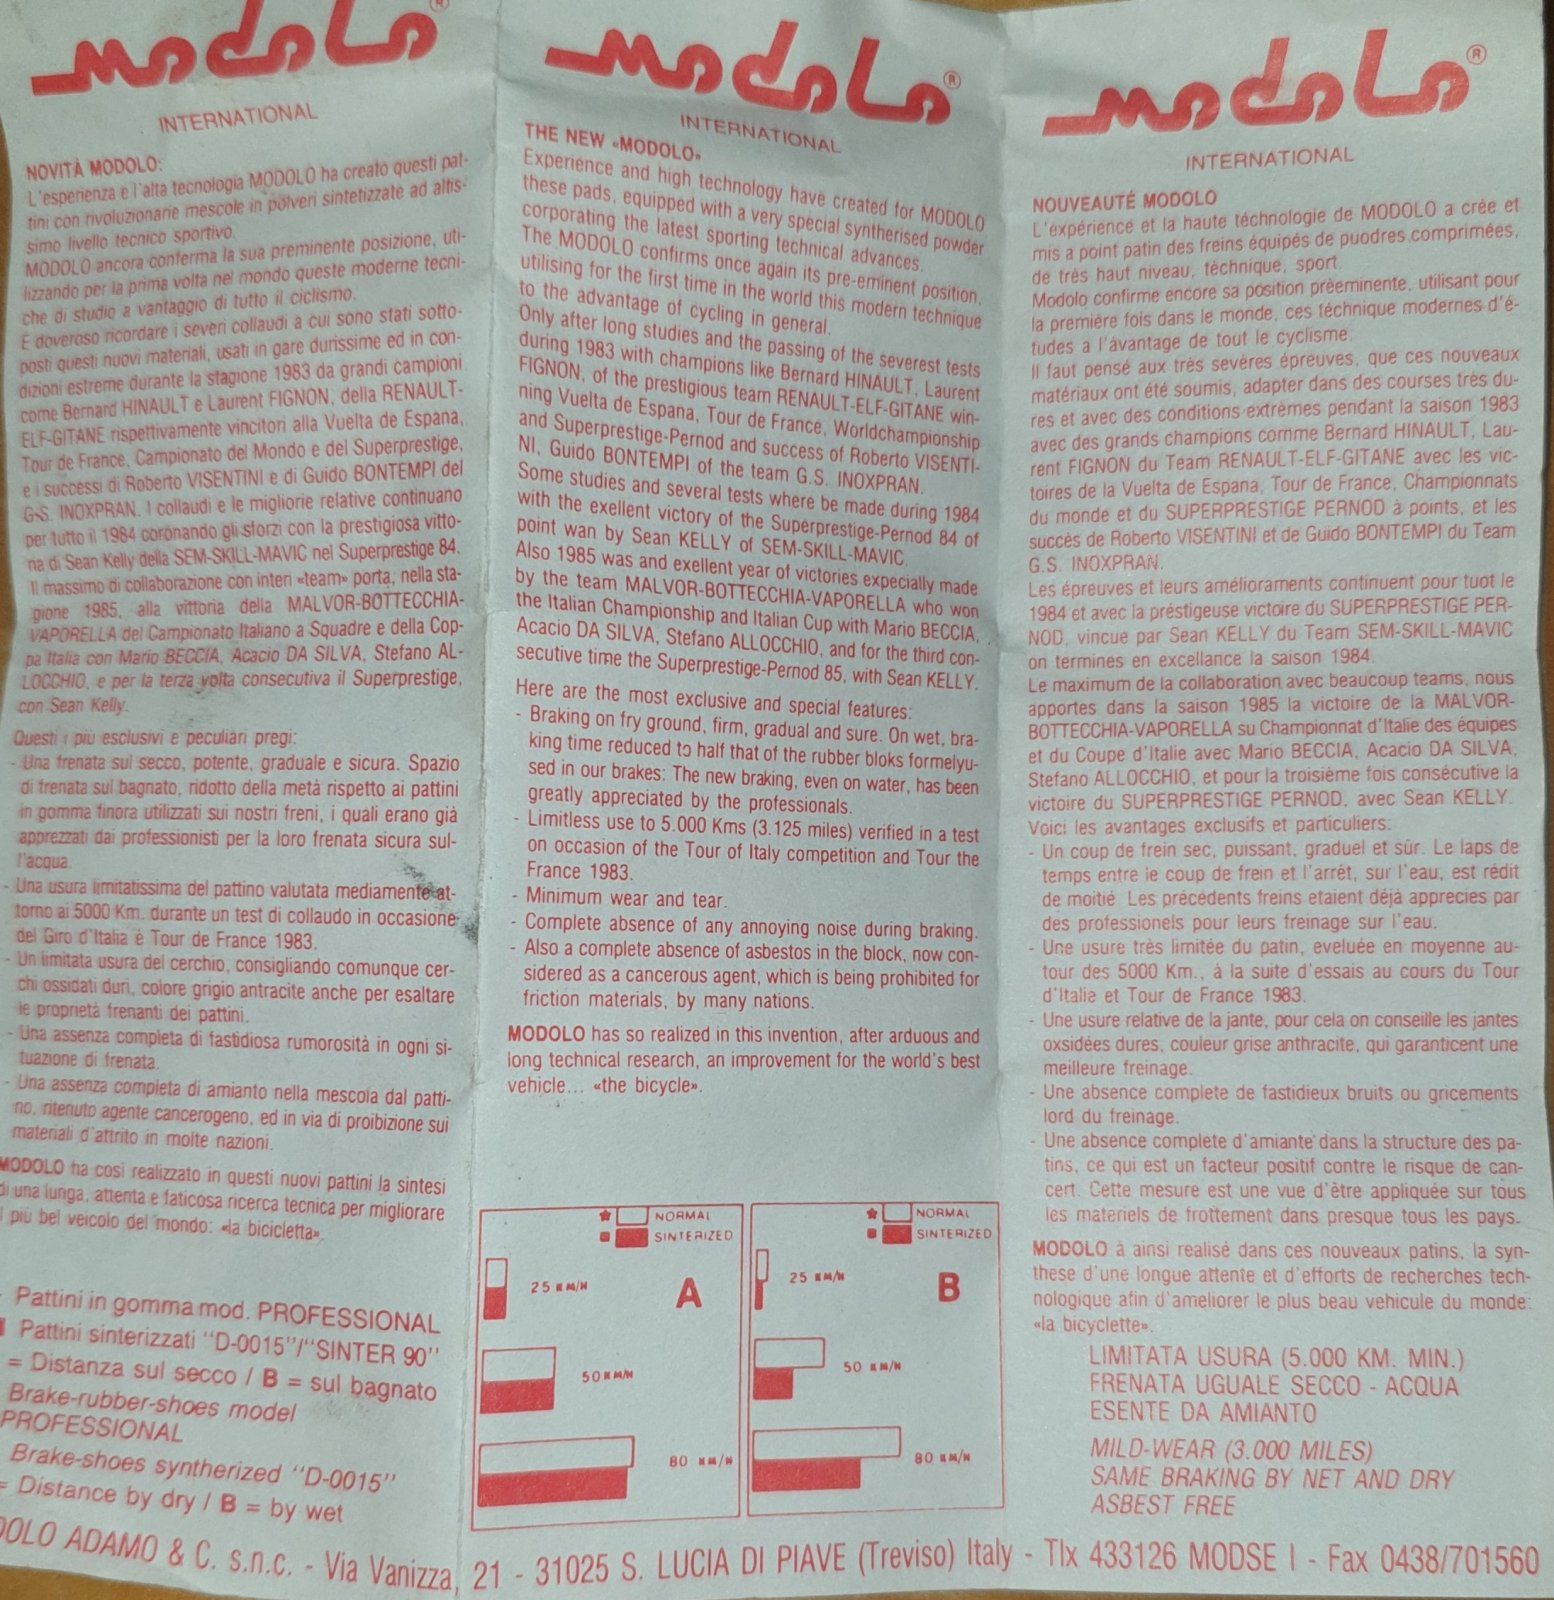 modolo®
INTERNATIONAL
NOVITÀ MODOLO:
L'esperienza e l'alta tecnologia MODOLO ha creato questi pat-
tini con rivoluzionarie mescole in polveri sintetizzate ad altis-
simo livello tecnico sportivo.
MODOLO ancora conferma la sua preminente posizione, uti-
lizzando per la prima volta nel mondo queste moderne tecni-
che di studio a vantaggio di tutto il ciclismo.
È doveroso ricordare i severi collaudi a cui sono stati sotto-
posti questi nuovi materiali, usati in gare durissime ed in con-
dizioni estreme durante la stagione 1983 da grandi campioni
come Bernard HINAULT e Laurent FIGNON, della RENAULT-
ELF-GITANE rispettivamente vincitori alla Vuelta de Espana,
Tour de France, Campionato del Mondo e del Superprestige,
e i successi di Roberto VISENTINI e di Guido BONTEMPI del
G-S. INOXPRAN. I collaudi e le migliorie relative continuano
per tutto il 1984 coronando gli sforzi con la prestigiosa vitto-
ria di Sean Kelly della SEM-SKILL-MAVIC nel Superprestige 84.
Il massimo di collaborazione con interi «team» porta, nella sta-
gione 1985, alla vittoria della MALVOR-BOTTECCHIA-
VAPORELLA del Campionato Italiano a Squadre e della Cop-
pa Italia con Mario BECCIA, Acacio DA SILVA, Stefano AL-
LOCCHIO, e per la terza volta consecutiva il Superprestige,
con Sean Kelly.
Questi i più esclusivi e peculiari pregi:
- Una frenata sul secco, potente, graduale e sicura. Spazio
di frenata sul bagnato, ridotto della metà rispetto ai pattini
in gomma finora utilizzati sui nostri freni, i quali erano già
apprezzati dai professionisti per la loro frenata sicura sul-
l'acqua.
- Una usura limitatissima del pattino valutata mediamente at-
torno ai 5000 Km. durante un test di collaudo in occasione
del Giro d'Italia e Tour de France 1983.
- Un limitata usura del cerchio, consigliando comunque cer-
chi ossidati duri, colore grigio antracite anche per esaltare
le proprietà frenanti dei pattini.
- Una assenza completa di fastidiosa rumorosità in ogni si-
tuazione di frenata.
- Una assenza completa di amianto nella mescola dal patti-
no, ritenuto agente cancerogeno, ed in via di proibizione sui
materiali d'attrito in molte nazioni.
MODOLO ha così realizzato in questi nuovi pattini la sintesi
di una lunga, attenta e faticosa ricerca tecnica per migliorare
il più bel veicolo del mondo: «la bicicletta».
Pattini in gomma mod. PROFESSIONAL
Pattini sinterizzati "D-0015"/"SINTER 90"
= Distanza sul secco / B = sul bagnato
Brake-rubber-shoes model
PROFESSIONAL
Brake-shoes syntherized "D-0015"
= Distance by dry / B = by wet
modolo®
INTERNATIONAL
THE NEW «MODOLO»
Experience and high technology have created for MODOLO
these pads, equipped with a very special syntherised powder
corporating the latest sporting technical advances.
The MODOLO confirms once again its pre-eminent position,
utilising for the first time in the world this modern technique
to the advantage of cycling in general.
Only after long studies and the passing of the severest tests
during 1983 with champions like Bernard HINAULT, Laurent
FIGNON, of the prestigious team RENAULT-ELF-GITANE win-
ning Vuelta de Espana, Tour de France, Worldchampionship
and Superprestige-Pernod and success of Roberto VISENTI-
NI, Guido BONTEMPI of the team G.S. INOXPRAN.
Some studies and several tests where be made during 1984
with the exellent victory of the Superprestige-Pernod 84 of
point wan by Sean KELLY of SEM-SKILL-MAVIC.
Also 1985 was and exellent year of victories expecially made
by the team MALVOR-BOTTECCHIA-VAPORELLA who won
the Italian Championship and Italian Cup with Mario BECCIA,
Acacio DA SILVA, Stefano ALLOCCHIO, and for the third con-
secutive time the Superprestige-Pernod 85, with Sean KELLY.
Here are the most exclusive and special features:
- Braking on fry ground, firm, gradual and sure. On wet, bra-
king time reduced to half that of the rubber bloks formelyu-
sed in our brakes: The new braking, even on water, has been
greatly appreciated by the professionals.
- Limitless use to 5.000 Kms (3.125 miles) verified in a test
on occasion of the Tour of Italy competition and Tour the
France 1983.
- Minimum wear and tear.
- Complete absence of any annoying noise during braking.
- Also a complete absence of asbestos in the block, now con-
sidered as a cancerous agent, which is being prohibited for
friction materials, by many nations.
MODOLO has so realized in this invention, after arduous and
long technical research, an improvement for the world's best
vehicle... «the bicycle».
NORMAL
SINTERIZED
25 KM/H
A
50 KM/H
80 KM/H
NORMAL
SINTERIZED
25 KM/H
B
50 KM/H
80 KM/H
modolo®
INTERNATIONAL
NOUVEAUTÉ MODOLO
L'expérience et la haute téchnologie de MODOLO a crée et
mis a point patin des freins équipés de puodres comprimées,
de trés haut niveau, téchnique, sport.
Modolo confirme encore sa position prèeminente, utilisant pour
la première fois dans le monde, ces téchnique modernes d'é-
tudes a l'âvantage de tout le cyclisme.
Il faut pensé aux très sevères épreuves, que ces nouveaux
matériaux ont été soumis, adapter dans des courses très du-
res et avec des conditions extrèmes pendant la saison 1983
avec des grands champions comme Bernard HINAULT, Lau-
rent FIGNON du Team RENAULT-ELF-GITANE avec les vic-
toires de la Vuelta de Espana, Tour de France, Championnats
du monde et du SUPERPRESTIGE PERNOD à points, et les
succès de Roberto VISENTINI et de Guido BONTEMPI du Team
G.S. INOXPRAN.
Les épreuves et leurs amélioraments continuent pour tuot le
1984 et avec la préstigeuse victoire du SUPERPRESTIGE PER-
NOD, vincue par Sean KELLY du Team SEM-SKILL-MAVIC
on termines en excellance la saison 1984.
Le maximum de la collaboration avec beaucoup teams, nous
apportes dans la saison 1985 la victoire de la MALVOR-
BOTTECCHIA-VAPORELLA su Championnat d'Italie des équipes
et du Coupe d'Italie avec Mario BECCIA, Acacio DA SILVA,
Stefano ALLOCCHIO, et pour la troisième fois consécutive la
victoire du SUPERPRESTIGE PERNOD, avec Sean KELLY.
Voici les avantages exclusifs et particuliers:
- Un coup de frein sec, puissant, graduel et sûr. Le laps de
temps entre le coup de frein et l'arrêt, sur l'eau, est rédit
de moitié. Les précédents freins etaient déjà apprecies par
des professionels pour leurs freinage sur l'eau.
- Une usure très limitée du patin, eveluée en moyenne au-
tour des 5000 Km., à la suite d'essais au cours du Tour
d'Italie et Tour de France 1983.
- Une usure relative de la jante, pour cela on conseille les jantes
oxsidées dures, couleur grise anthracite, qui garanticent une
meilleure freinage.
- Une absence complete de fastidieux bruits ou gricements
lord du freinage.
- Une absence complete d'amiante dans la structure des pa-
tins, ce qui est un facteur positif contre le risque de can-
cert. Cette mesure est une vue d'être appliquée sur tous
les materiels de frottement dans presque tous les pays.
MODOLO à ainsi realisé dans ces nouveaux patins, la syn-
these d'une longue attente et d'efforts de recherches tech-
nologique afin d'ameliorer le plus beau vehicule du monde:
«la bicyclette».
LIMITATA USURA (5.000 KM. MIN.)
FRENATA UGUALE SECCO - ACQUA
ESENTE DA AMIANTO
MILD-WEAR (3.000 MILES)
SAME BRAKING BY NET AND DRY
ASBEST FREE
DOLO ADAMO & C. s.n.c. - Via Vanizza, 21 - 31025 S. LUCIA DI PIAVE (Treviso) Italy - Tlx 433126 MODSE I - Fax 0438/701560